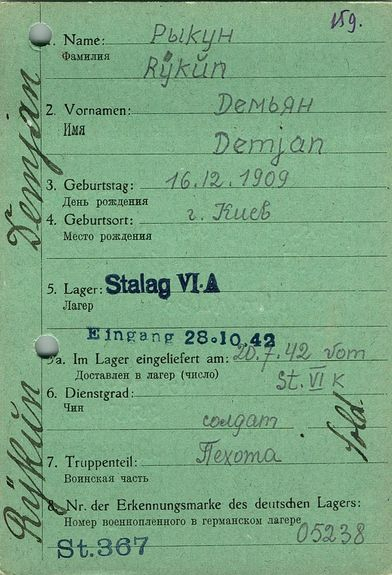 159.
1. Name: Рыкун
Фамилия
Rÿkün
2. Vornamen: Демьян
Имя
Demjan
3. Geburtstag: 16.12.1909
День рождения
4. Geburtsort: г. Киев
Место рождения
5. Lager: Stalag VI·A
Лагер
Eingang 28.10.42
5a. Im Lager eingeliefert am: 20.7.42 vom
Доставлен в лагер (число) St. VI K
6. Dienstgrad:
Чин
солдат
Sold.
7. Truppenteil: Пехота
Воинская часть
8. Nr. der Erkennungsmarke des deutschen Lagers:
Номер военнопленного в германском лагере 05238
St.367
Rÿkün Demjan